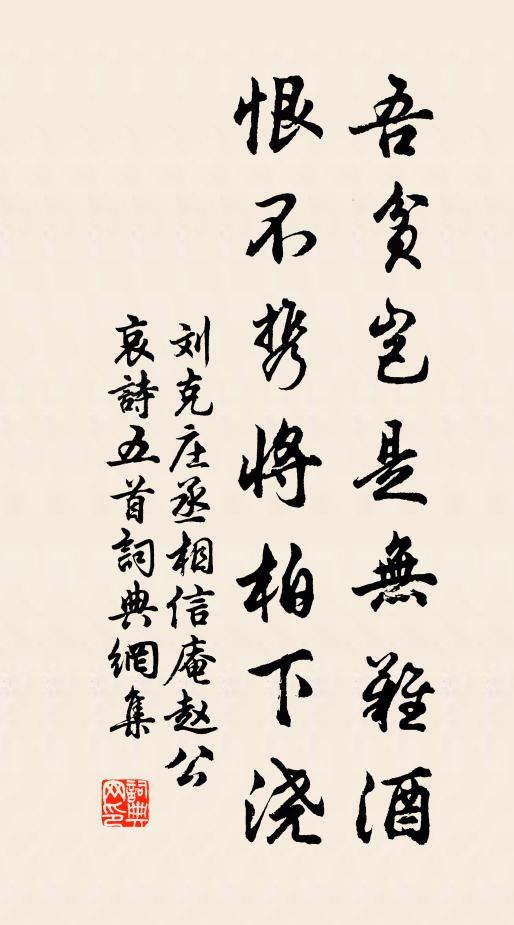 吾貧岂是無雞酒
恨不携将柏下浇
刘克庄丞相信庵赵公
哀詩五首詞典網集
詞典
网印